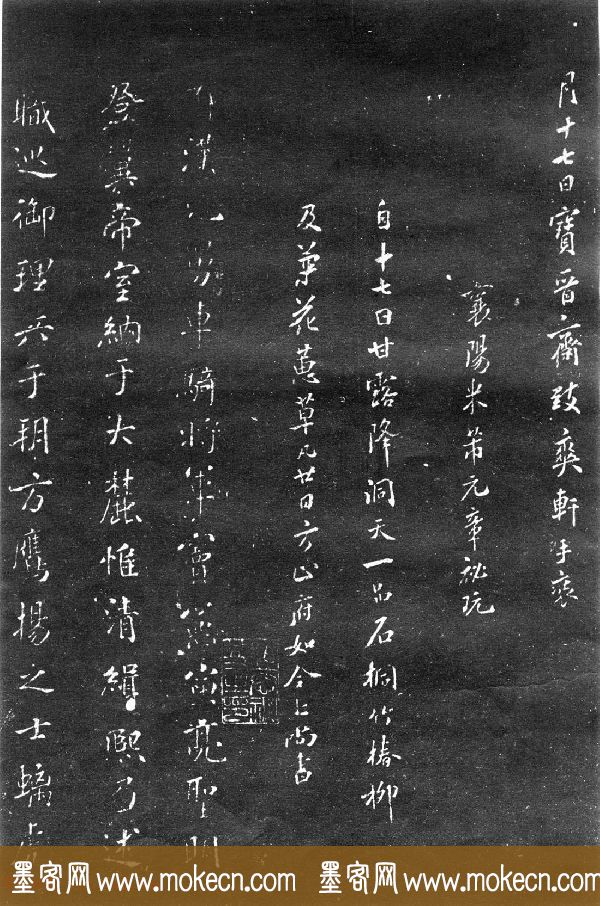 月十七日寶晉齋致爽軒手裝
襄陽米芾元章祕玩
自十七日甘露降洞天一品石桐竹椿柳
及葉花蕙草凡廿日方止府如令上尚書
漢元舅車騎將軍竇寅亮聖明
登翼帝室納于大麓惟清緝熙乃述
職巡御理兵于朔方鷹揚之士螭虎
墨客网 www.mokecn.com 墨客网 www.mokecn.com